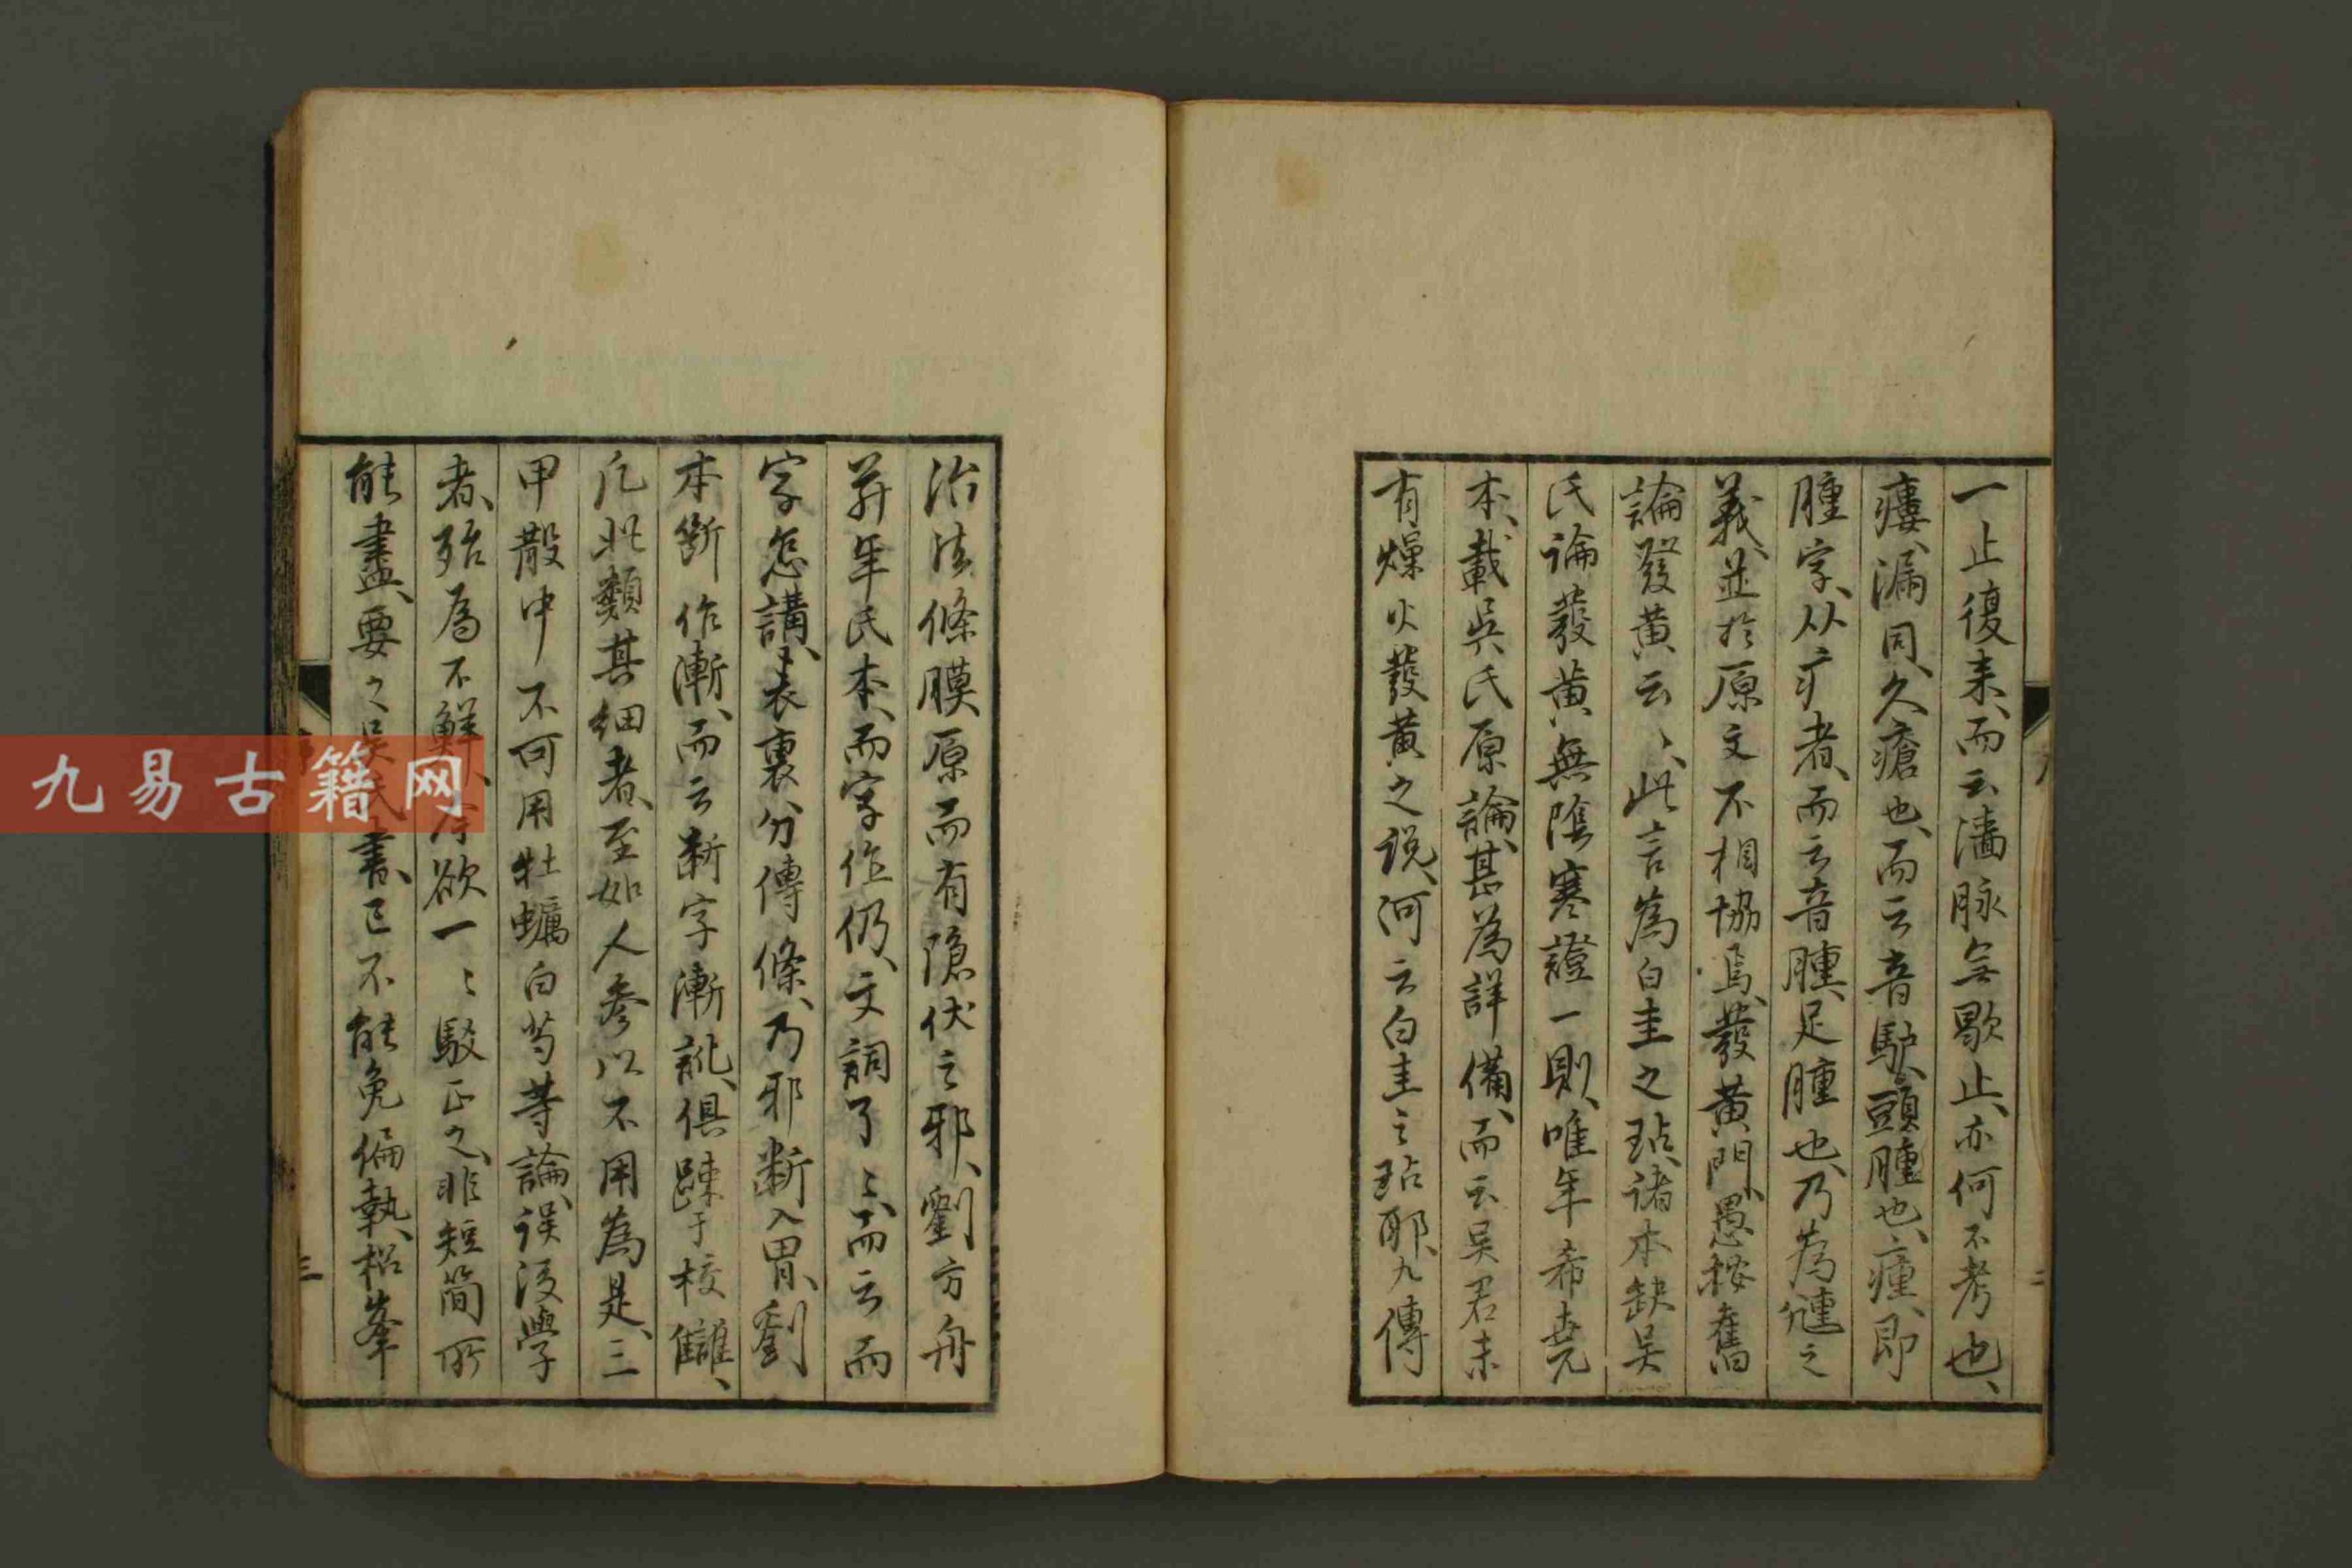 一止復来、而云濇脉無歇止、亦何不考也、
瘻、漏同、久瘡也、而云音馿、頭腫也、瘇、即
腫字、从疒者、而云音腫、足腫也、乃為之
義、並於原文不相協焉、發黄門、愚按舊
論發黄云〻、此言為白圭之玷、諸本缺吴
氏論發黄、無陰寒證一則、唯年希堯
本、載吴氏原論、甚為詳備、而云吴君未
有燥火發黄之説、何云白圭之玷耶、九傳
治法條膜原而有隐伏之邪、劉方舟
并年氏本、而字作仍、文詞了〻、而云而
字怎講、表裏分傳條、乃邪斷入胃、劉
本斷作漸、而云斷字漸訛、俱踈于校讎、
凢此類其細者、至如人参以不用為是、三
甲散中不可用牡蠣白芍等論、误後學
者、殆為不鮮、欲一〻駁正之、非短简所
能盡、要之吴氏書、已不能免偏執、松峯
三
九易古籍网